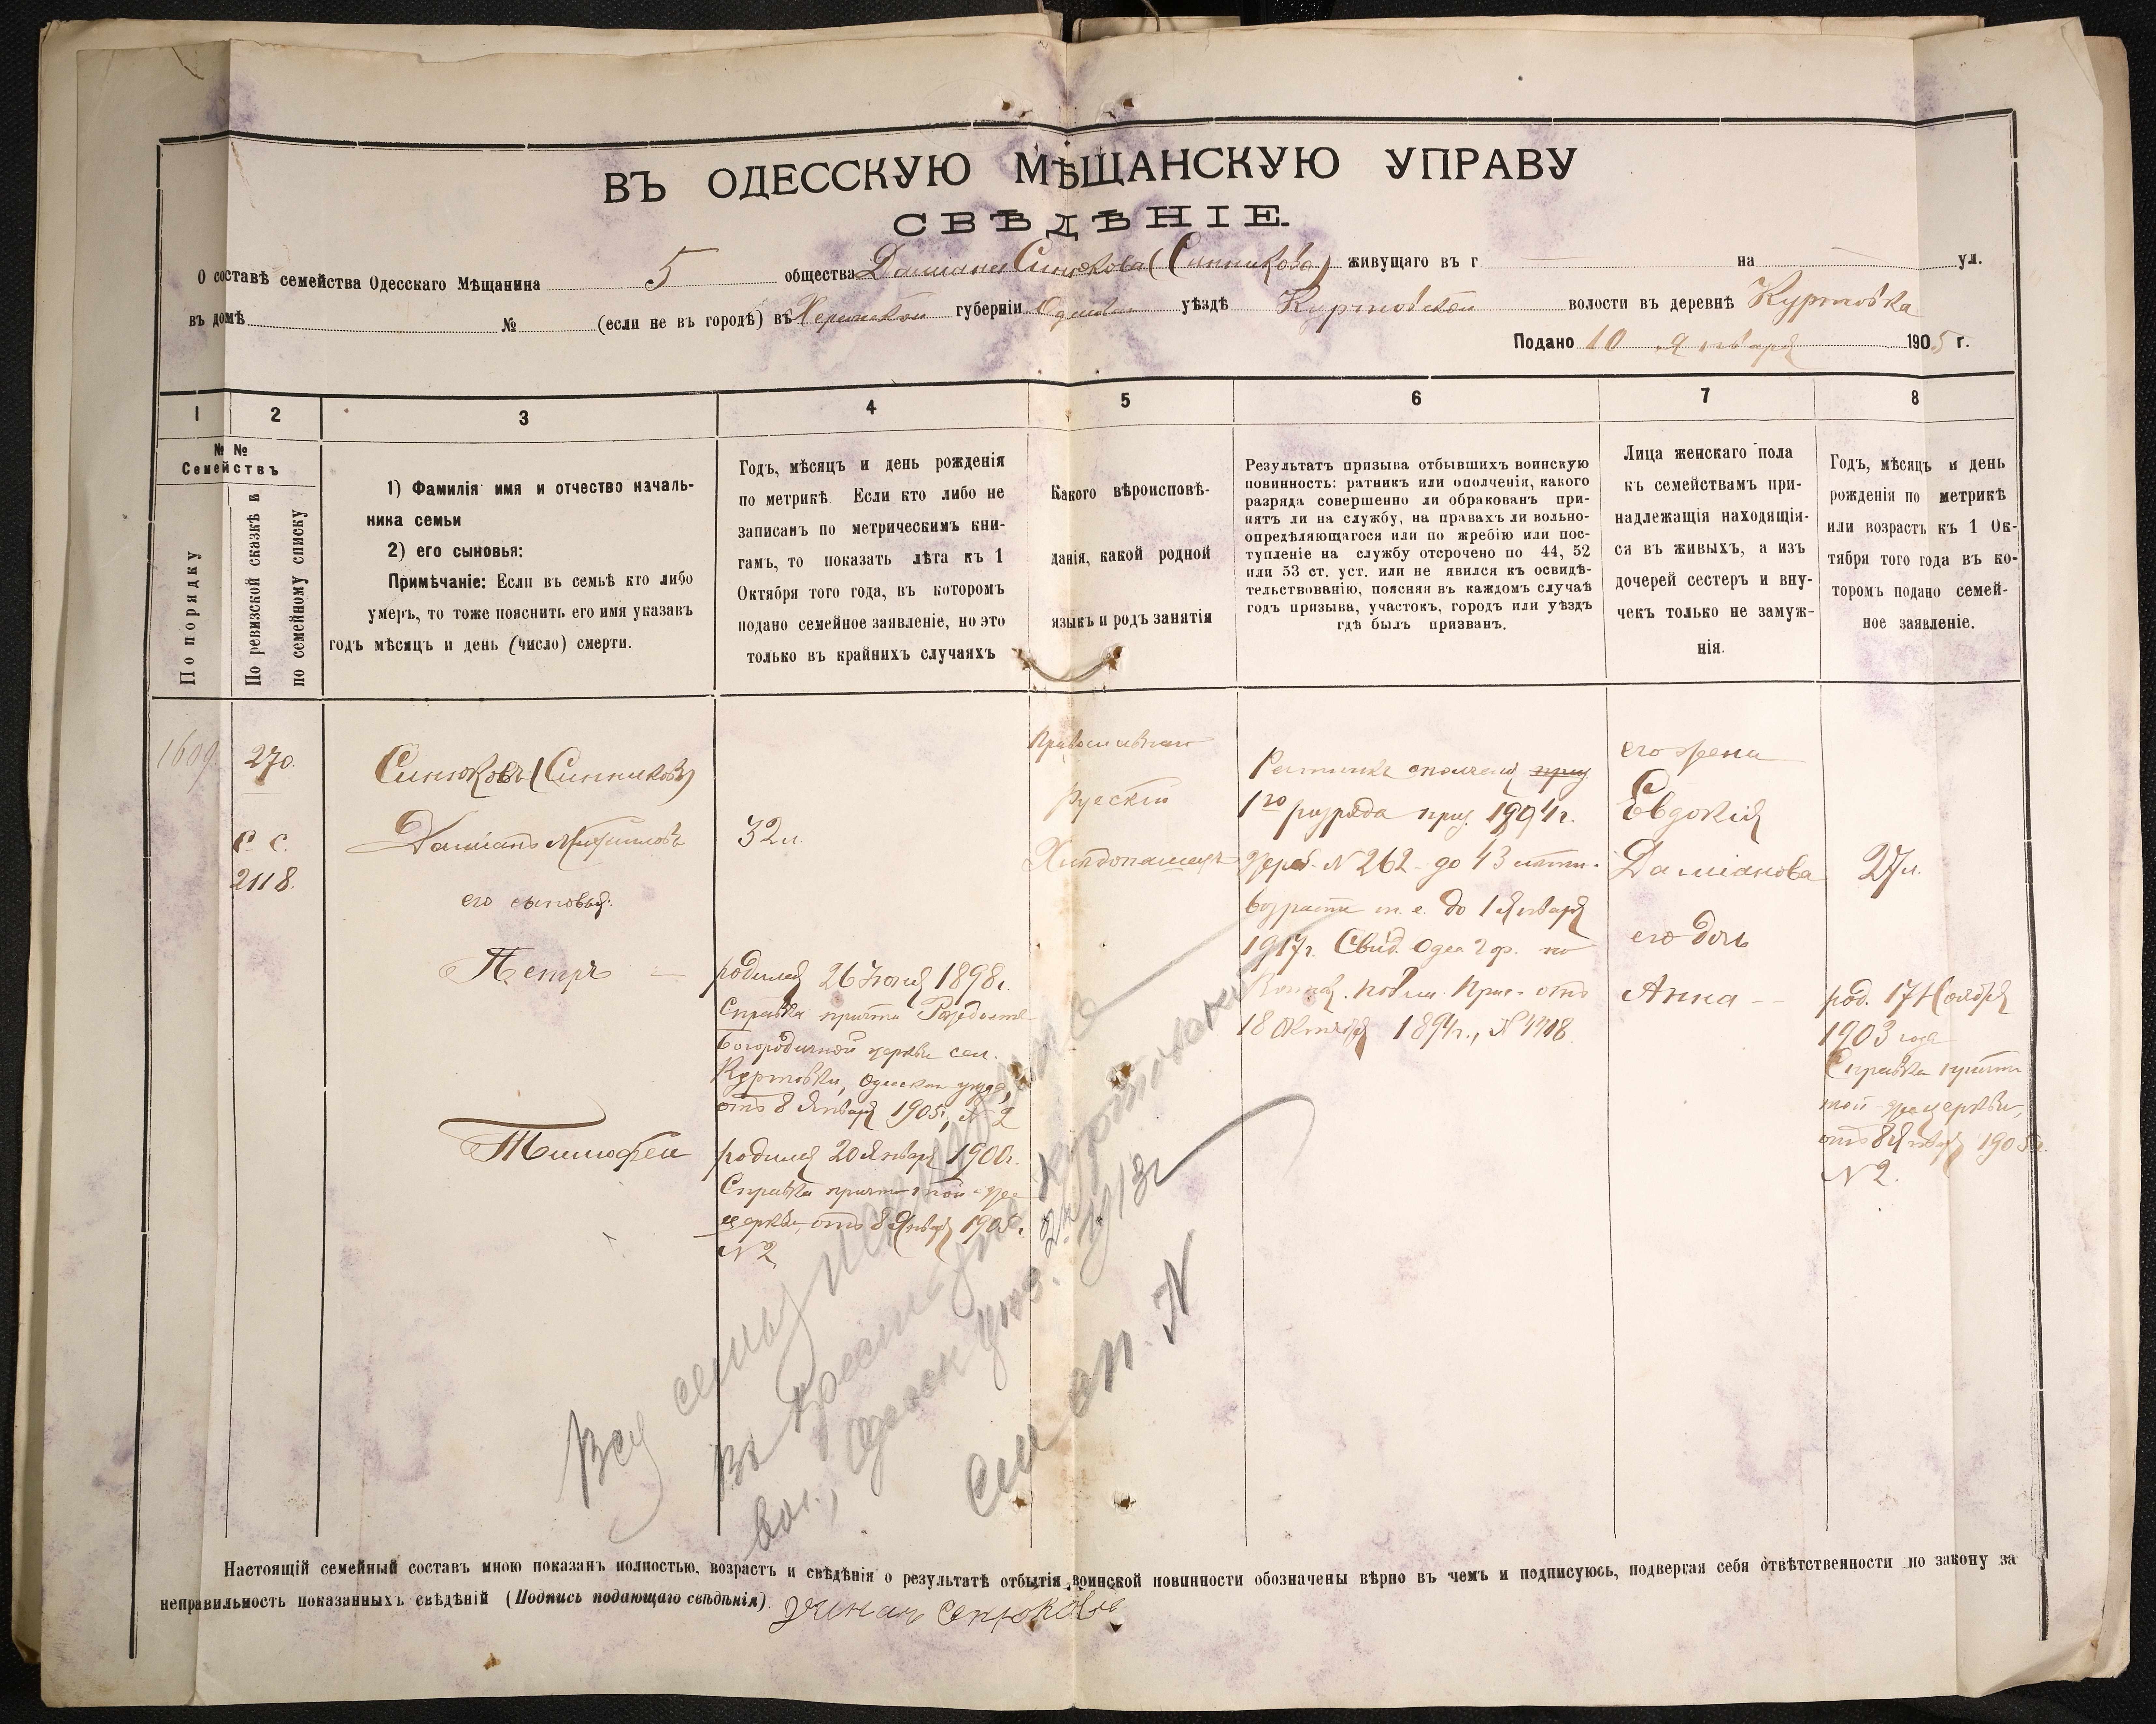 ВЪ ОДЕССКУЮ МѢЩАНСКУЮ УПРАВУ
СВѢДѢНІЕ.
О составѣ семейства Одесскаго Мѣщанина 5 общества Даміана Синюкова (Синникова) живущаго въ г на ул.
въ домѣ № (если не въ городѣ) въ Херсонской губерніи Одесскомъ уѣздѣ Куртовской волости въ деревнѣ Куртовка
Подано 10 Января 1905 г.
1 2 3 4 5 6 7 8
№ №
Семействъ
По порядку
По ревизской сказкѣ и
по семейному списку
1) Фамилія имя и отчество началь-
ника семьи
2) его сыновья:
Примѣчаніе: Если въ семьѣ кто либо
умеръ, то тоже пояснить его имя указавъ
годъ мѣсяцъ и день (число) смерти.
Годъ, мѣсяцъ и день рожденія
по метрикѣ Если кто либо не
записанъ по метрическимъ кни-
гамъ, то показать лѣта къ 1
Октября того года, въ которомъ
подано семейное заявленіе, но это
только въ крайнихъ случаяхъ
Какого вѣроисповѣ-
данія, какой родной
языкъ и родъ занятія
Результатъ призыва отбывшихъ воинскую
повинность: ратникъ или ополченія, какого
разряда совершенно ли обракованъ при-
нятъ ли на службу, на правахъ ли вольно-
опредѣляющагося или по жребію или пос-
тупленіе на службу отсрочено по 44, 52
или 53 ст. уст. или не явился къ освидѣ-
тельствованію, поясняя въ каждомъ случаѣ
годъ призыва, участокъ, городъ или уѣздъ
гдѣ былъ призванъ.
Лица женскаго пола
къ семействамъ при-
надлежащія находящія-
ся въ живыхъ, а изъ
дочерей сестеръ и вну-
чекъ только не замуж-
нія.
Годъ, мѣсяцъ и день
рожденія по метрикѣ
или возрастъ къ 1 Ок-
тября того года въ ко-
торомъ подано семей-
ное заявленіе.
1609.
270.
с с.
2118.
Синюковъ (Синниковъ)
Даміанъ
его сыновья:
Петръ
Тимофей
32 л.
родился 26 Іюня 1898 г.
Справка причта Рождество
Богородичной церкви сел.
Куртовки, Одесскаго уѣзда,
отъ 8 Января 1905 г., № 2
родился 20 Января 1900 г.
Справка причта той-же
церкви отъ 8 Января 1905 г.
№ 2
Православнаго
Русскій
Хлѣбопашецъ
Ратникъ ополченія приз
1го разряда приз. 1894 г.
Жреб. № 262 до 43 лѣтн.
возраста т. е. до 1 Января
1917 г. Свид. Одес. по
Воинск. повин. Прис. отъ
18 Октября 1894 г., № 4708.
его жена
Евдокія
Даміанова
его дочь
Анна
27 л.
род. 17 Ноября
1903 года
Справка причта
той же церкви,
отъ 8 Января 1905 г.
№ 2.
Вся семья
въ крестьяне Куртовской
вол., Одесск. уѣз. 1913 г
См оп. N
Настоящій семейный составъ мною показанъ полностью, возрастъ и свѣдѣнія о результатѣ отбытія воинской повинности обозначены вѣрно въ чемъ и подписуюсь, подвергая себя отвѣтственности по закону за
неправильность показанныхъ свѣдѣній (Подпись подающаго свѣдѣнія)